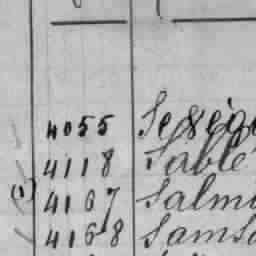 4055
4118 Sable
(1) 4167 Salm
4168 Sams